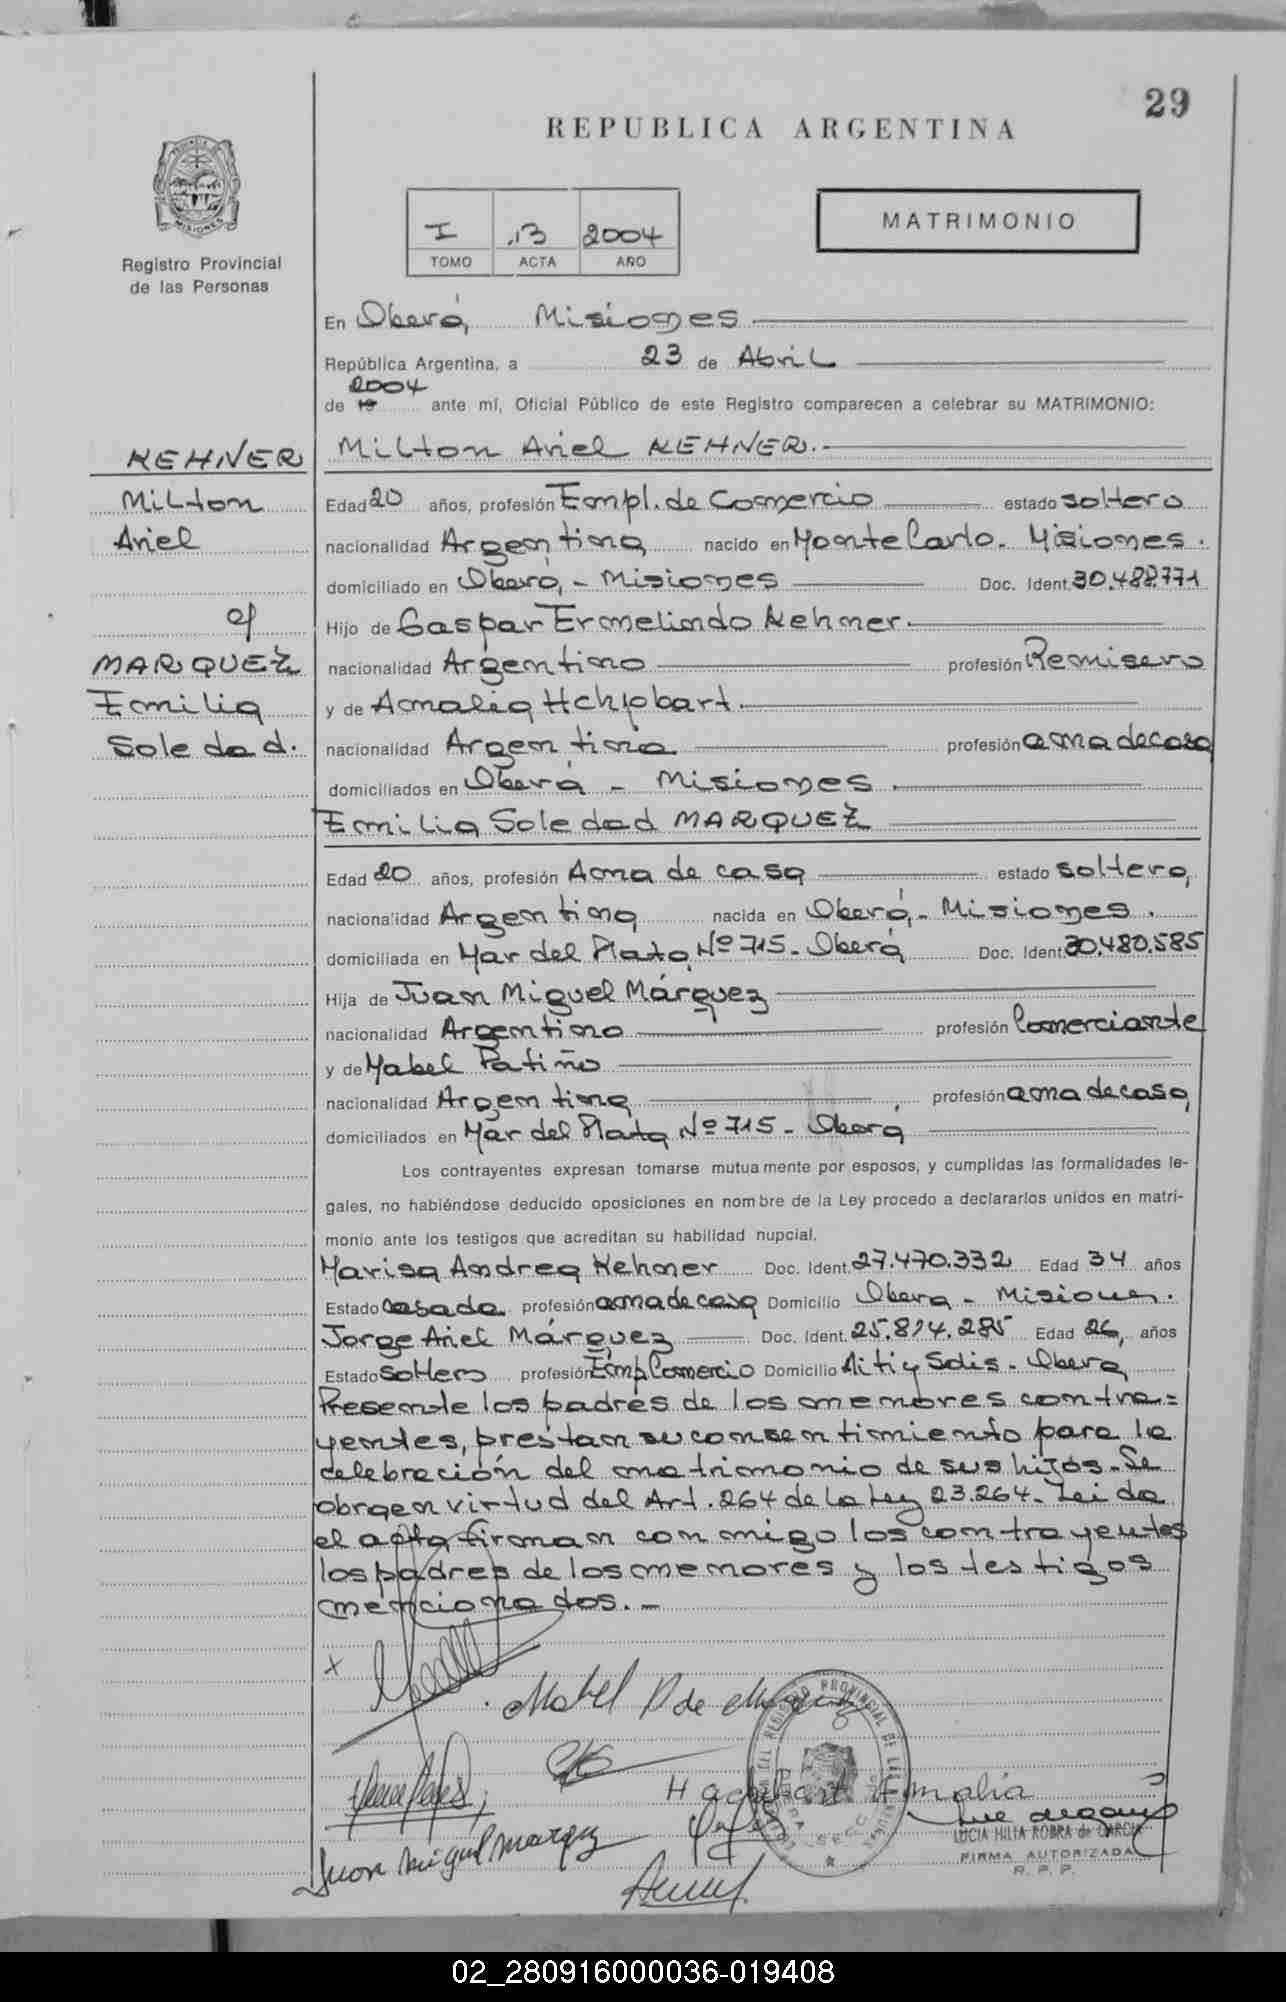 29
REPUBLICA ARGENTINA
PROVINCIA DE
MISIONES
Registro Provincial
de las Personas
I 13 2004
TOMO ACTA AÑO
MATRIMONIO
En Oberá, Misiones
República Argentina, a 23 de Abril
2004
de 19 ante mí, Oficial Público de este Registro comparecen a celebrar su MATRIMONIO:
KEHNER
Milton
Ariel
c/
MARQUEZ
Emilia
Soledad.
Milton Ariel KEHNER.-
Edad 20 años, profesión Empl. de Comercio estado soltero
nacionalidad Argentina nacido en Monte Carlo. Misiones.
domiciliado en Oberá, - Misiones Doc. Ident. 30.488.771
Hijo de Gaspar Ermelindo Kehner.
nacionalidad Argentino profesión Remisero
y de Amalia
nacionalidad Argentina profesión ama de casa
domiciliados en Oberá - Misiones.
Emilia Soledad MARQUEZ
Edad 20 años, profesión Ama de casa estado soltera,
nacionalidad Argentina nacida en Oberá, - Misiones.
domiciliada en Mar del Plata Nº 715 - Oberá Doc. Ident. 30.480.585
Hija de Juan Miguel Márquez
nacionalidad Argentino profesión Comerciante
y de Mabel Patiño
nacionalidad Argentina profesión ama de casa,
domiciliados en Mar del Plata Nº 715 - Oberá
Los contrayentes expresan tomarse mutuamente por esposos, y cumplidas las formalidades le-
gales, no habiéndose deducido oposiciones en nombre de la Ley procedo a declararlos unidos en matri-
monio ante los testigos que acreditan su habilidad nupcial.
Marisa Andrea Kehner Doc. Ident. 27.470.332 Edad 34 años
Estado casada profesión ama de casa Domicilio Oberá - Misiones.
Jorge Ariel Márquez Doc. Ident. 25.814.285 Edad 26, años
Estado soltero profesión Emp Comercio Domicilio Solis - Oberá
Presente los padres de los menores contra=
yentes, prestan su consentimiento para la
celebración del matrimonio de sus hijos. Se
obra en virtud del Art. 264 de la Ley 23.264. Leida
el acta firman conmigo los contrayentes
los padres de los menores y los testigos
mencionados.-
x
Mabel P de Marquez
Amalia
Juan Miguel Marquez
REGISTRO PROVINCIAL DE LAS
LUCIA HILIA ROBRA de GARCIA
FIRMA AUTORIZADA
R. P. P.
02_280916000036-019408